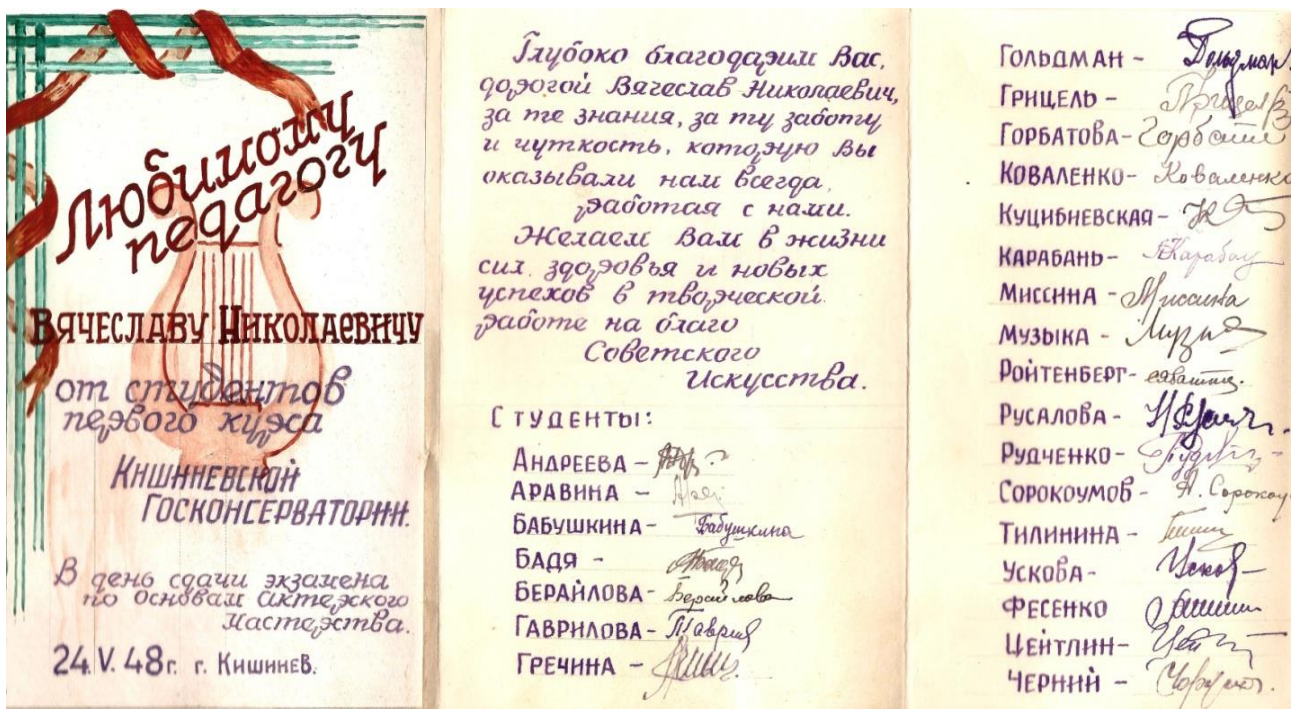 Любимому
педагогу
Вячеславу Николаевичу
от студентов
первого курса
Кишиневской
Госконсерватории.
В день сдачи экзамена
по основам актерского
мастерства.
24.V.48г. г. Кишинев.
Глубоко благодарим Вас,
дорогой Вячеслав Николаевич,
за те знания, за ту заботу
и чуткость, которую Вы
оказывали нам всегда,
работая с нами.
Желаем Вам в жизни
сил, здоровья и новых
успехов в творческой
работе на благо
Советского
Искусства.
Студенты:
Андреева –
Аравина –
Бабушкина – Бабушкина
Бадя –
Берайлова – Берайлова
Гаврилова – Гаврил
Гречина –
Гольдман – Гольдман
Грицель –
Горбатова –
Коваленко – Коваленко
Куцибневская –
Карабань –
Миссина – Миссина
Музыка –
Ройтенберг –
Русалова –
Рудченко –
Сорокоумов – А. Сорокоу
Тилинина –
Ускова –
Фесенко
Цейтлин –
Черний –